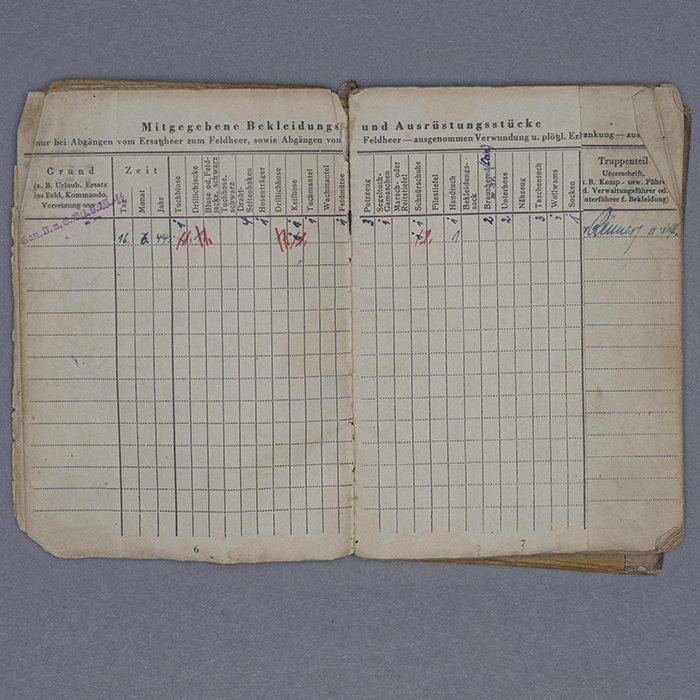 Mitgegebene Bekleidungs
nur bei Abgängen vom Ersatzheer zum Feldheer, sowie Abgängen von
Grund
(z. B. Urlaub, Ersatz
ins Feld, Kommando,
Versetzung usw.)
Zeit
Tag
Monat
Jahr
Tuchbluse
Drillichjacke
Bluse od. Feld-
jacke, schwarz
Tuchhose,
schwarz
Draht-
Seitenhaken
Hosenträger
Drillichhose
Keilhose
Tuchmantel
Wachmantel
Feldmütze
1 4 1 1 1 1 1
16. 6. 44
6
und Ausrüstungsstücke
Feldheer—ausgenommen Verwundung u. plötzl. Erkrankung—aus
Putzzeug
Segeltuch-
Gamaschen
Marsch- oder
Reitstiefel
Schnürschuhe
Filzstiefel
Handtuch
Bekleidungs-
sack
Braunhemd
Unterhose
Nähzeug
Taschentuch
Wollwams
Socken
Truppenteil
Unterschrift,
z. B. Komp.- usw. Führer
d. Verwaltungsführer od.
Unterführer f. Bekleidung)
3 1 1 1 2 2 3 1 1
1
7